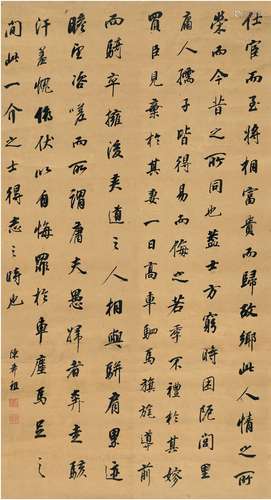 仕宦而至將相富貴而歸故鄉此人情之所
榮而今昔之所同也蓋士方窮時困阨閭里
庸人孺子皆得易而侮之若季不禮於其嫂
買臣見棄於其妻一旦高車駟馬旗旄導前
而騎卒擁後夾道之人相與駢肩累迹
瞻望咨嗟而所謂庸夫愚婦者奔走駭
汗羞愧俯伏以自悔罪於車塵馬足之
間此一介之士得志之時也
陳希祖